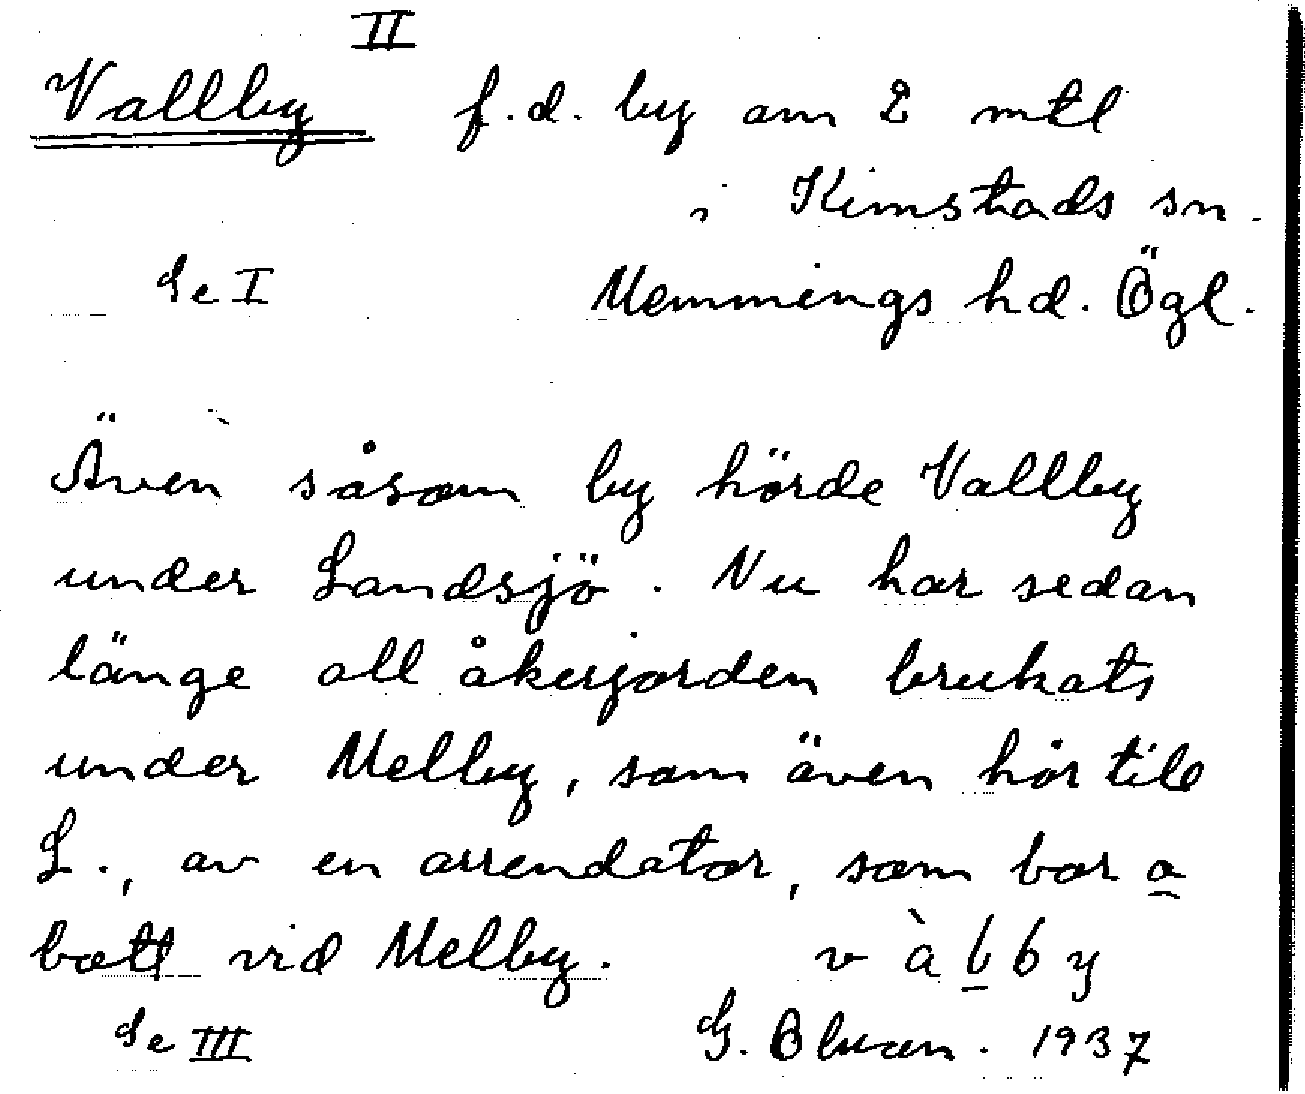 II
Vallby f.d. by om 2 mtl
i Kimstads sn.
Se I Memmings hd. Ögl.
Även såsom by hörde Vallby
under Landsjö. Nu har sedan
länge all åkerjorden brukats
under Melby, som även hör till
L., av en arrendator, som bor o
bott vid Melby. v à b b y
Se III G. 1937